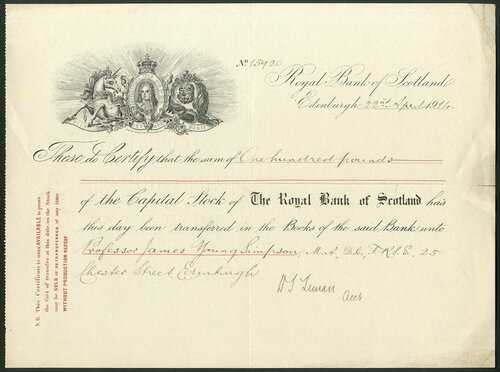 No 15920
Royal Bank of Scotland
Edinburgh, 22nd April 1914.
These do Certify that the sum of One hundred pounds
of the Capital Stock of The Royal Bank of Scotland has
this day been transferred in the Books of the said Bank unto
Professor James Young Simpson, M.A, D.Sc, F.R.S.E, 25
Chester Street, Edinburgh
Acct
N.B. This Certificate is only AVAILABLE to prove
the fact of transfer at this date as the Stock
may be SOLD or RETRANSFERRED at any time
WITHOUT PRODUCTION HEREOF